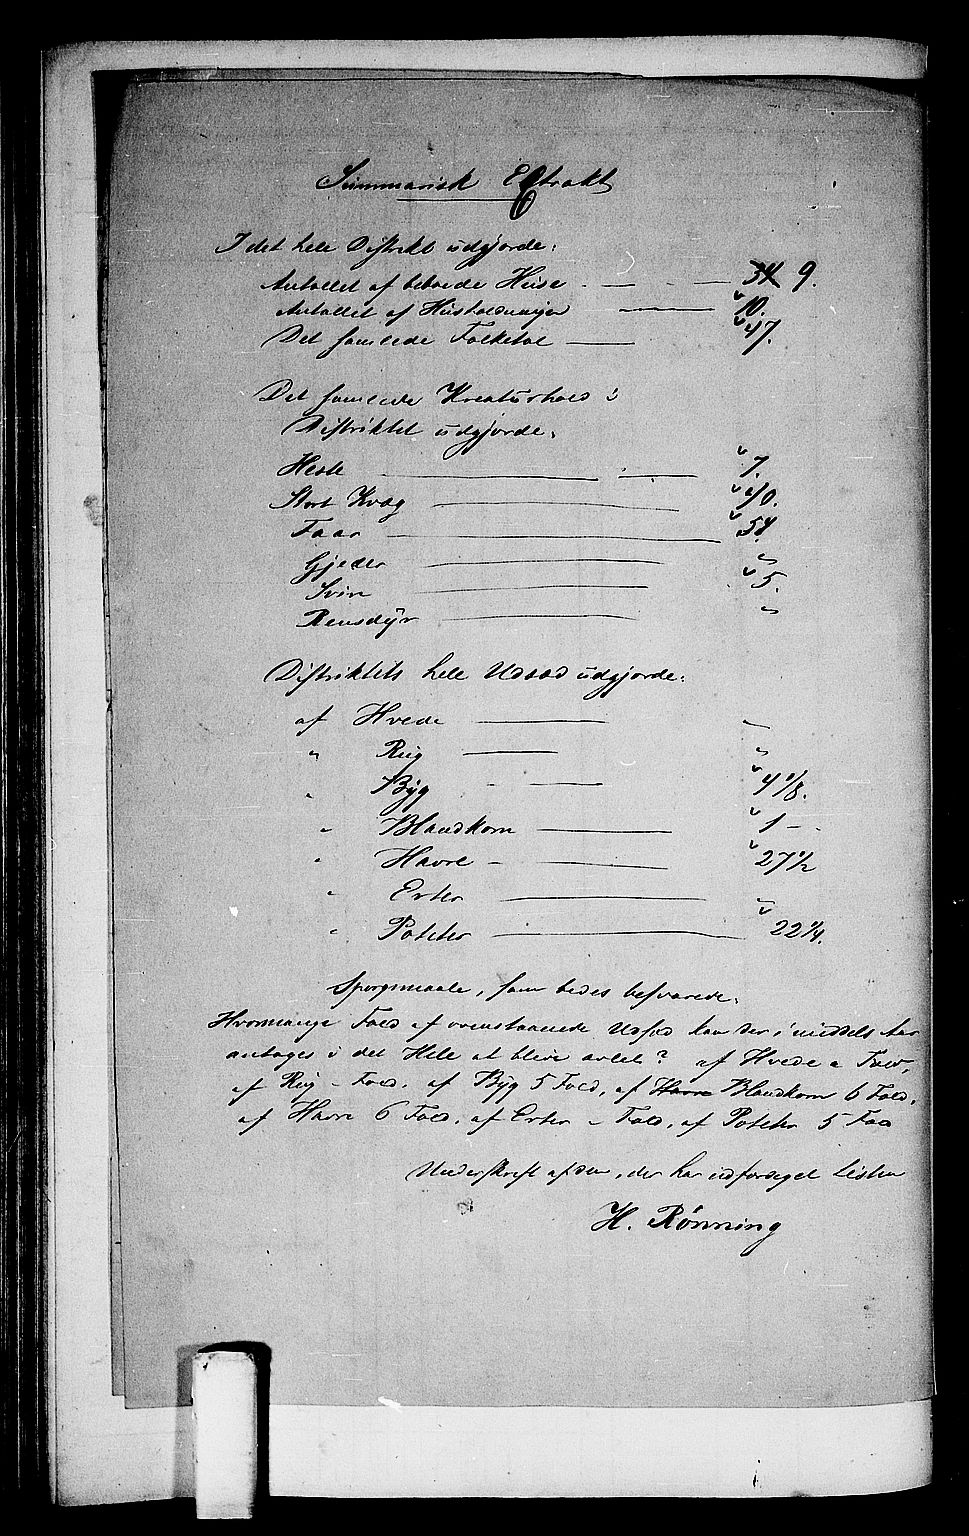 Summarisk Extrakt
I det hele Distrikt udgjorde:
Antallet af beboede Huse — 34 9.
Antallet af Husholdninger — 10.
Det samlede Folketal — 47.
Det samlede Kreaturhold i
Distriktet udgjorde:
Heste — 7.
Stort Kvæg — 40.
Faar — 54.
Gjeder — "
Svin — 5.
Rensdyr — "
Distriktets hele Udsæd udgjorde:
af Hvede — "
" Rug — "
" Byg — 4 1/8.
" Blandkorn — 1 —
" Havre — 27 1/2
" Erter — "
" Poteter — 22 1/4.
Spørgsmaale, som bedes besvarede.
Hvormange Fold af ovenstaaende Udsæd kan der i middels Aar
antages i det Hele at blive avlet? af Hvede " Fold,
af Rug — Fold, af Byg 5 Fold, af Havre Blandkorn 6 Fold,
af Havre 6 Fold, af Erter — Fold, af Poteter 5 Fold
Underskrift af den, der har udfærdiget Listen
H. Rønning